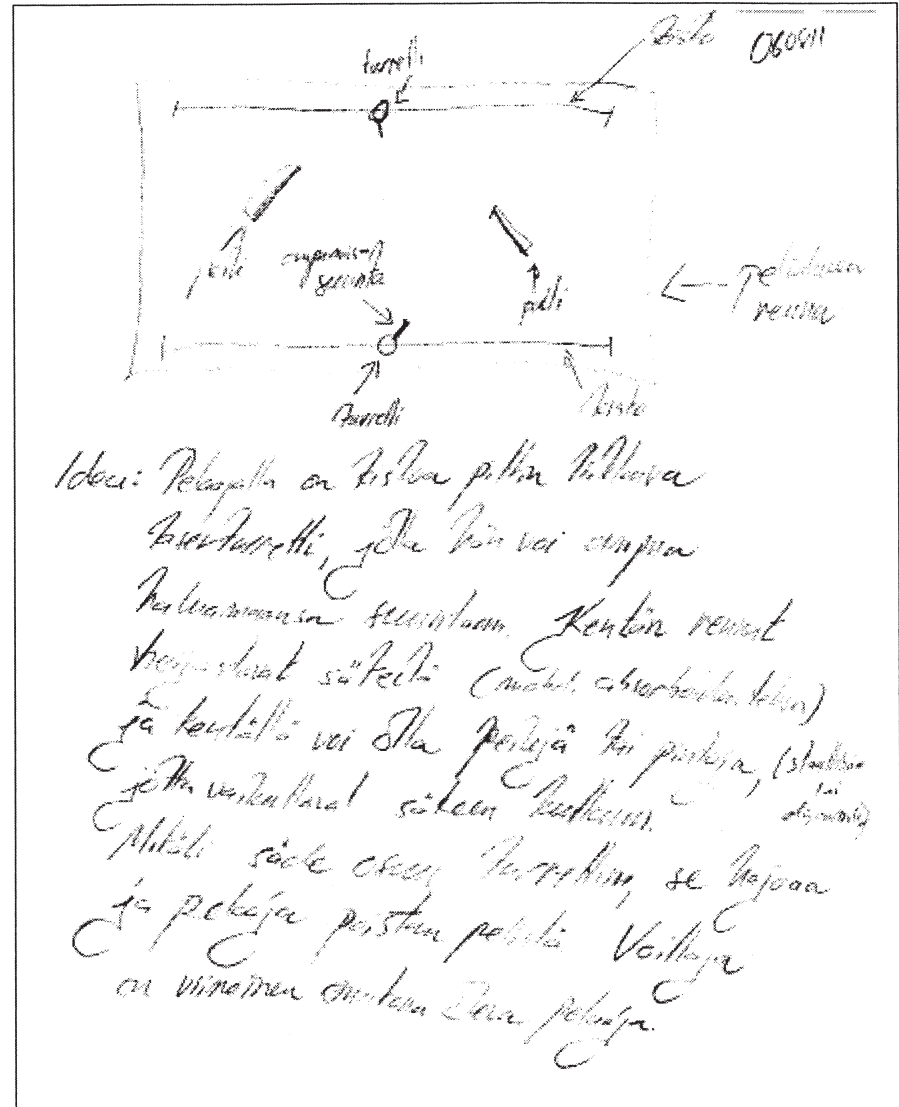 kisko
060811
turretti
peili
ampumis-
suunta
peili
pelialueen
reuna
turretti
kisko
Idea: Pelaajalla on kiskoa pitkin liikkuva
laserturretti, jolla hän voi ampua
haluamaansa suuntaan. Kentän reunat
heijastavat säteitä (mahd. absorboidenkin)
ja kentällä voi olla peilejä tai pintoja, (staattisia
tai
dynaamisia)
jotka vaikuttavat säteen kulkuun.
Mikäli säde osuu turrettiin, se hajoaa
ja pelaaja poistuu pelistä. Voittaja
on viimeinen omatava pelaaja.